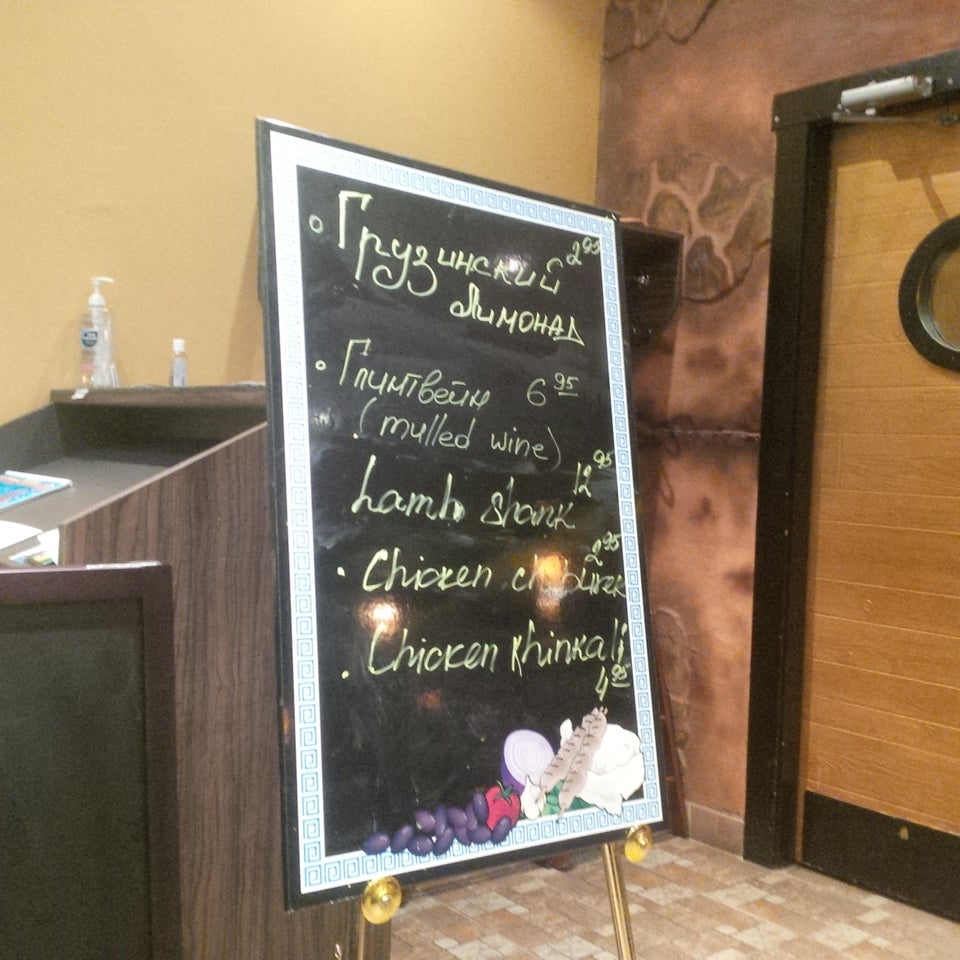 Грузинский 2.95
Лимонад
Глинтвейн 6.95
(mulled wine)
Lamb Shank 12.95
Chicken cheburek 2.95
Chicken Khinkali
4.95